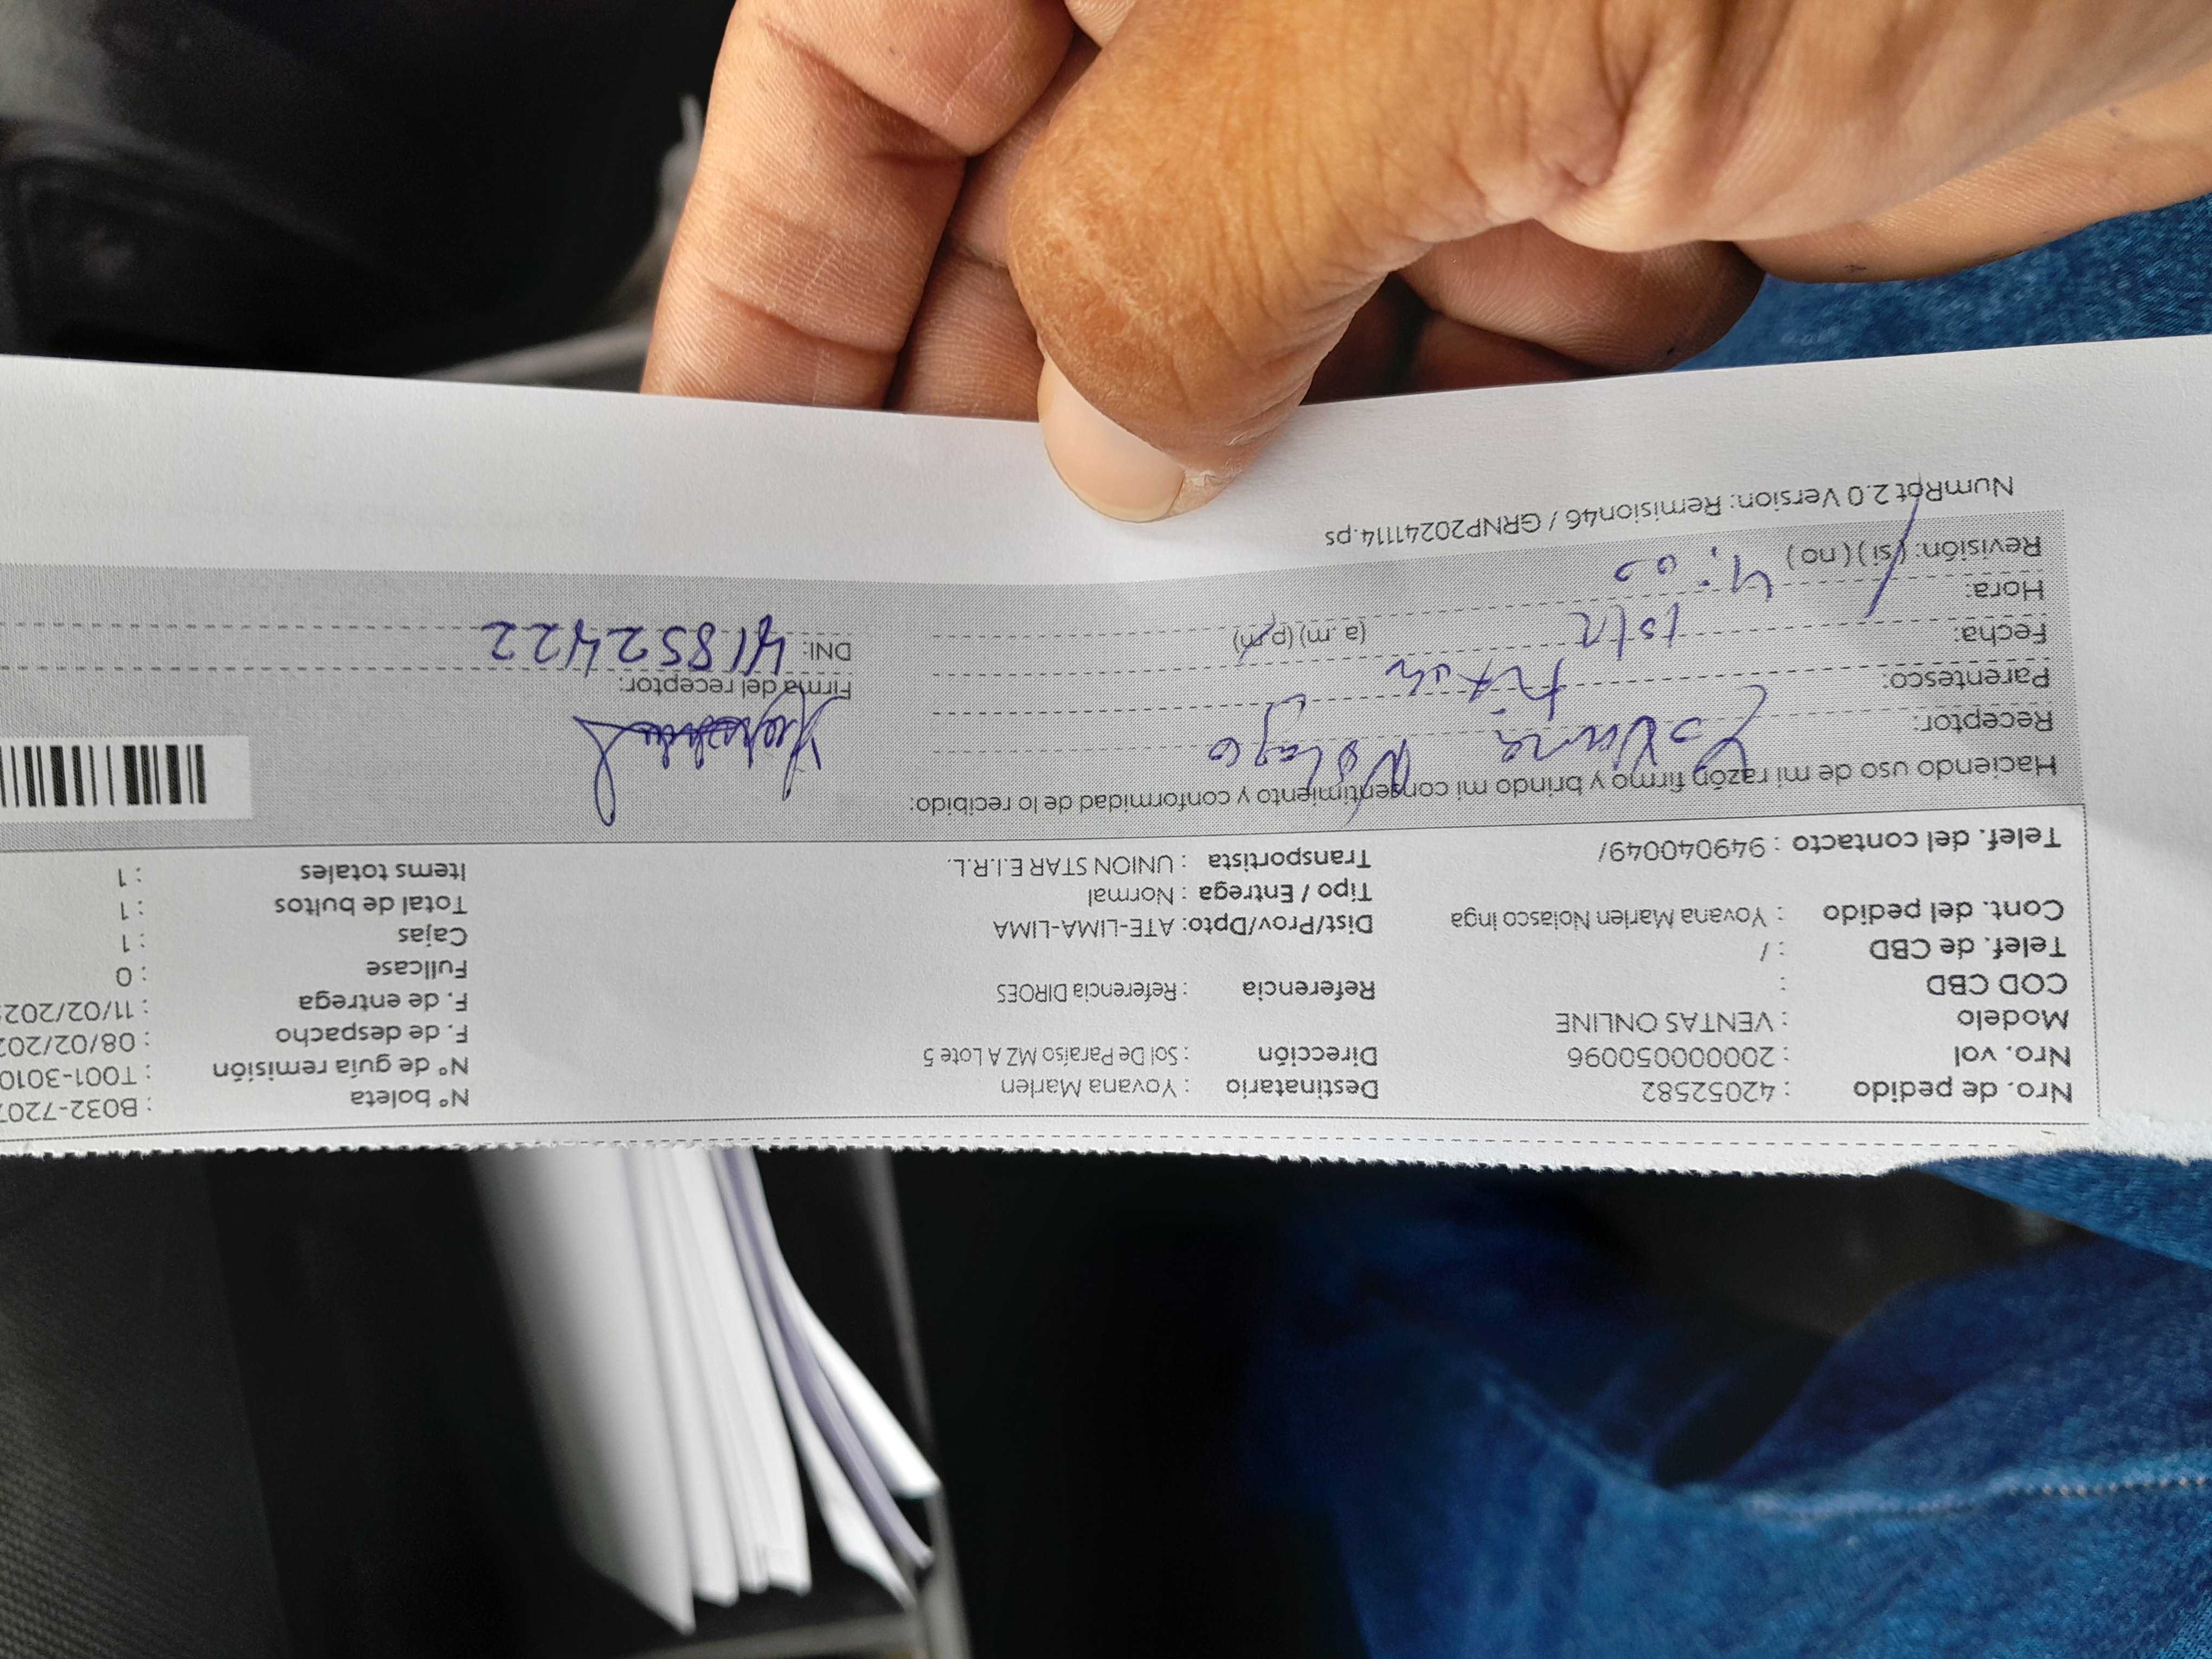 Nro. de pedido : 42052582 Destinatario : Yovana Marlen N° boleta : B032-7207
Nro. vol : 20000050096 Dirección : Sol De Paraiso MZ A Lote 5 N° de guía remisión : T001-3010
Modelo : VENTAS ONLINE F. de despacho : 08/02/202
COD CBD : Referencia : Referencia DIROES F. de entrega : 11/02/202
Telef. de CBD : / Fullcase : 0
Cont. del pedido : Yovana Marlen Nolasco Inga Dist/Prov/Dpto: ATE-LIMA-LIMA Cajas : 1
Tipo / Entrega : Normal Total de bultos : 1
Telef. del contacto : 949040049/ Transportista : UNION STAR E.I.R.L. Items totales : 1
Haciendo uso de mi razón firmo y brindo mi consentimiento y conformidad de lo recibido:
Receptor:
Parentesco: Firma del receptor:
Fecha: (a. m) (p.m) DNI: 41852422
Hora: 4:00
Revisión: (si) (no)
NumRot 2.0 Version: Remision46 / GRNP20241114.ps